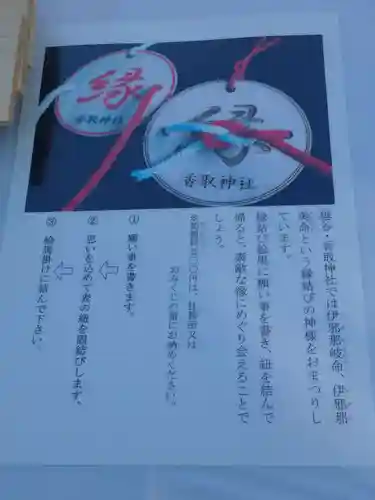 縁
香取神社
縁
香取神社
香取神社では伊邪那岐命、伊邪那
美命という縁結びの神様をおまつりし
ています。
縁結び絵馬に願い事を書き、紐を結んで
帰ると、素敵な縁にめぐり会えることで
しょう。
社務所又は
おみくじの箱にお納めください。
① 願い事を書きます。
② 思いを込めて表の紐を固結びします。
③ 絵馬掛けに結んで下さい。